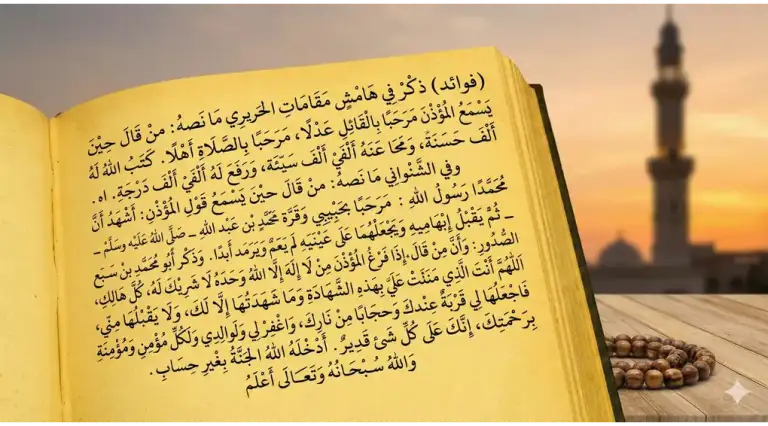 (فوائد) ذكْرَ فِي هَامْشِ مَقَامَاتِ الحَرِيرِي مَا نَصهُ: منْ قَالَ حِيْنَ
يَسْمَعُ المُؤْذْنَ مَرْحَبًا بِالقَائِلِ عَدْلًا، مَرْحَبًا بِالصَّلَاةِ أَهْلًا. كَتَبُ اللهُ لَهُ
أَلْفَ حَسَنَةً، وَمَحَا عَنهُ أَلْفَيْ أَلْفَ سَيّئَة، وَرَفَعَ لَهُ أَلْفَيْ أَلْفَ دَرَجَةِ. اه.
وفي الشَّنْوانِي مَا نَصهُ: منْ قَالَ حيْنَ يَسْمَعُ قَوْلِ المُؤْذْنِ: أَشْهَدُ أَنَّ
مُحَمَّدًا رَسُولُ اللهِ : مَرْحَبًا بحَبِيبِي وَقُرَّة مُحَمَّدٍ بن عَبْد اللهِ ـ صَلَّى اللهُ عَلَيْه وسَلَّمْ ـ
ـ ثُمْ يَقْبُلُ إِبْهَاميهِ وَيَجْعَلْهُمَا عَلَى عَيْنَيْهِ لَمْ يَعْمَ وَيَرمَد أبدًا. وَذَكَر أَبُو مُحَمَّد بن سَبَع
الصُّدُورِ: وَأَنَّ مِنْ قَالَ. إِذَا فَرغَ المُؤْذْنَ مِنْ لَا إِلَهَ إِلَّا اللهُ وَحدَهُ لَا شَرِيكَ لَهُ، كُلُّ هَالِكِ،
اَللَّهُمَّ أَنْتَ الَّذِي مَنَنْتَ عَلَيَّ بِهذهِ الشَّهَادَة وَمَا شَهدتُهَا إِلَّا لَكَ، وَلَا يَقْبلُهَا مِنّي،
فَاجعَلْهَا لِي قُرْبَةٌ عِنْدكَ وَحجَابًا مِنْ نَارِكَ، وَاغْفِرْ لِي وَلوَالِدِي وَلكُلّ مُؤْمِنٍ وَمُؤْمِنَةٍ
بِرَحْمَتِكَ، إِنَّكَ عَلَى كُلّ شَيْ قَدِيرٌ. أَدْخَلَهُ اللهُ الجَنَّةُ بِغَيْرِ حِسَابٍ.
وَاللهُ سُبْحَانَهُ وَتَعَالَى أَعْلَمُ